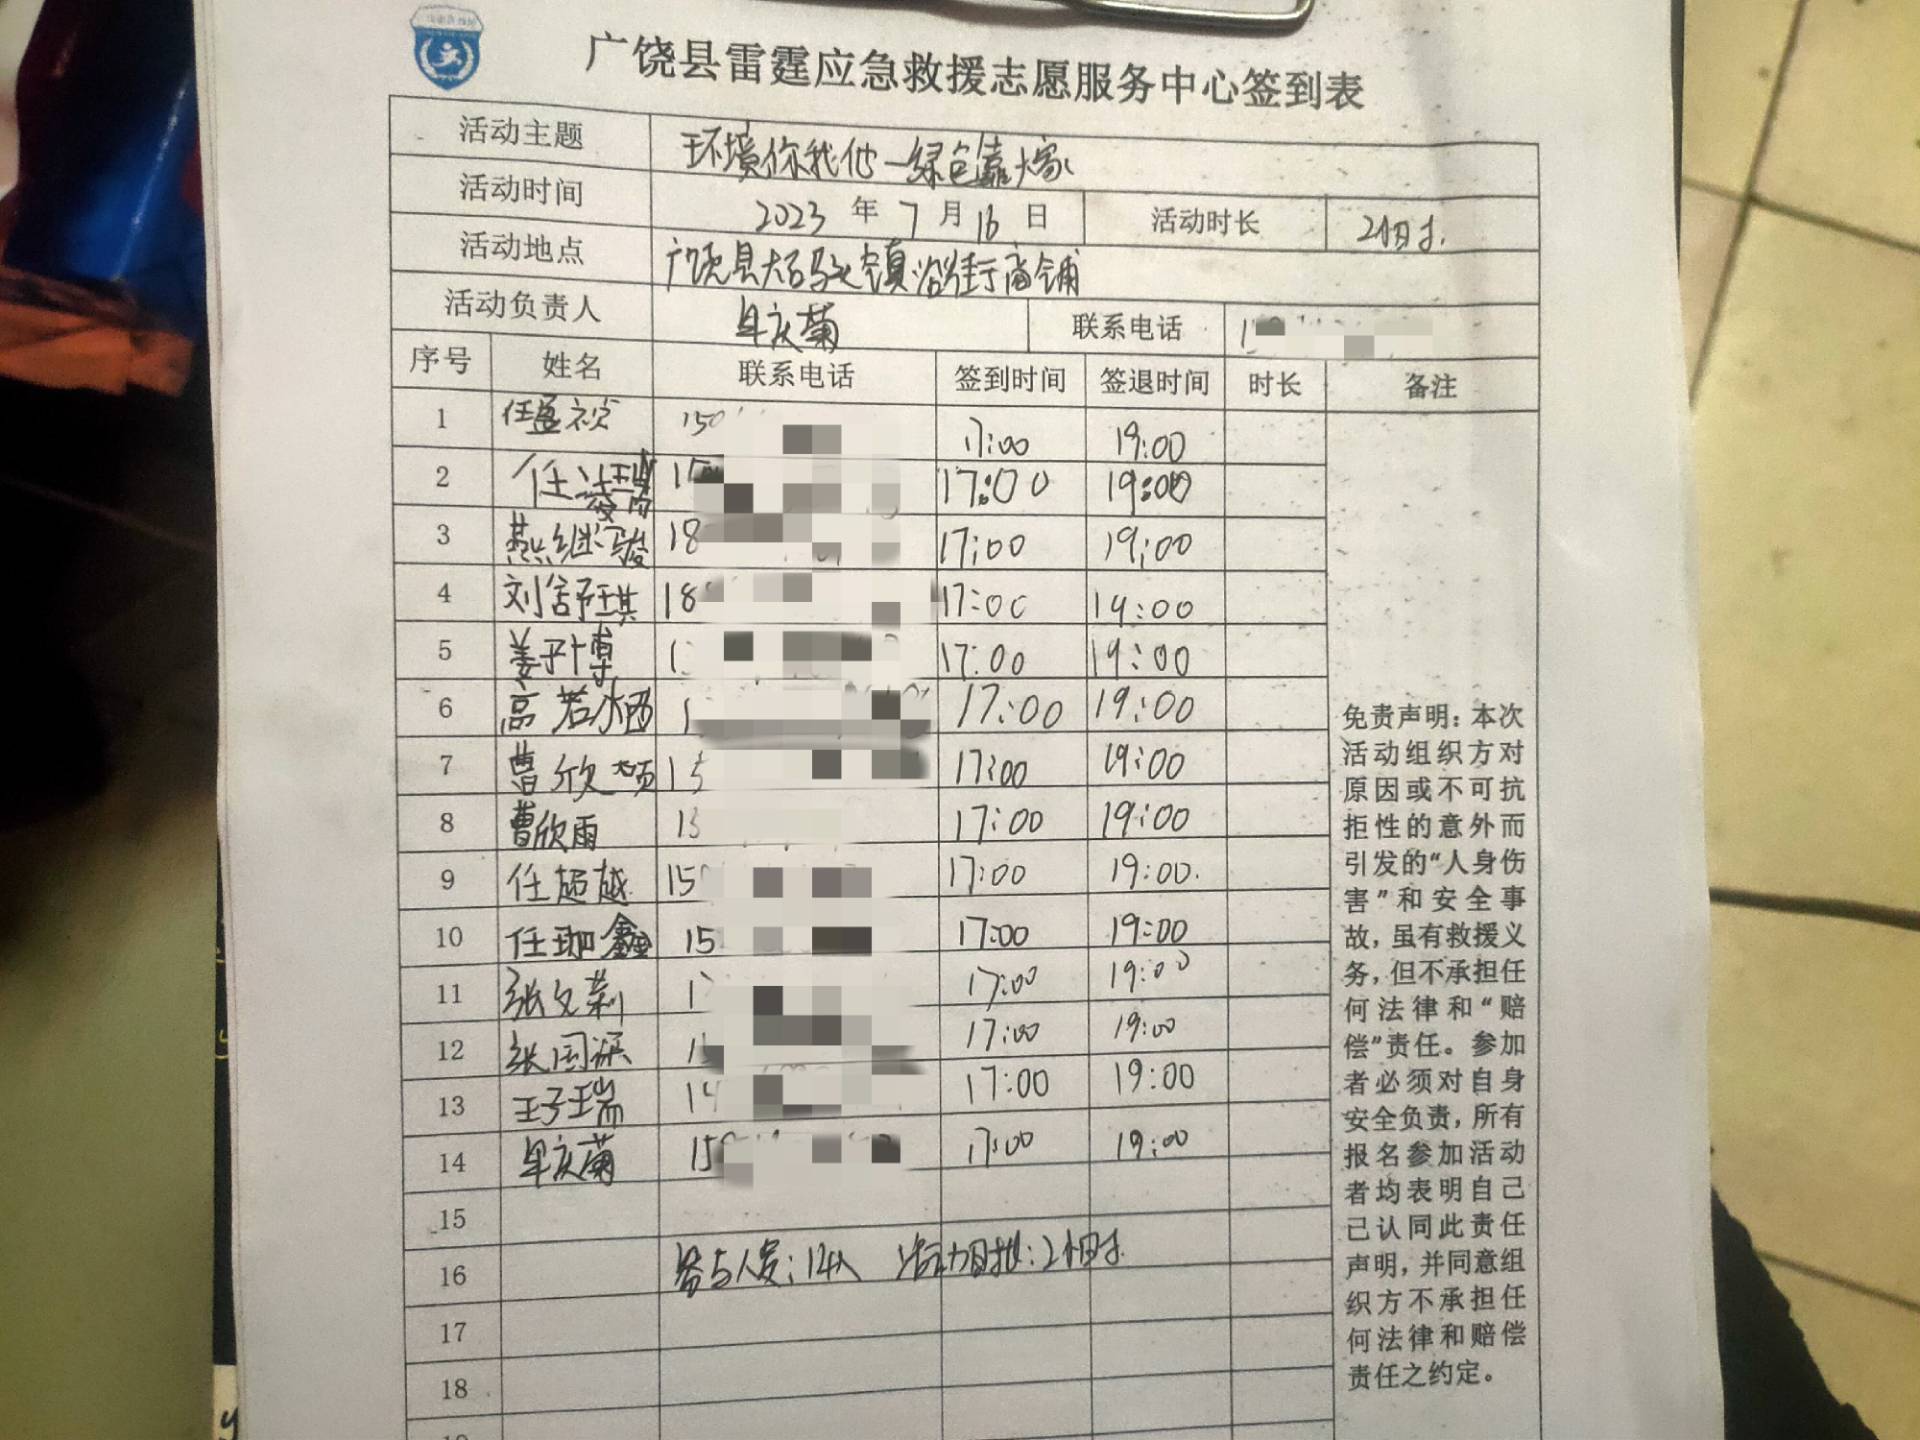 广饶县雷霆应急救援志愿服务中心签到表
活动主题 环境你我他一绿色靠大家
活动时间 2023 年 7 月 16 日 活动时长 2小时
活动地点 广饶县大码头镇沿街商铺
活动负责人 牟庆菊 联系电话 1
序号 姓名 联系电话 签到时间 签退时间 时长 备注
1 任孟 150 17:00 19:00
2 任 15 17:00 19:00
3 燕继骏 18 17:00 19:00
4 刘舒琪 18 17:00 19:00
5 姜子博 1 17:00 19:00
6 高若 1 17:00 19:00
7 曹欣 15 17:00 19:00
8 曹欣雨 13 17:00 19:00
9 任超越 15 17:00 19:00
10 任珈鑫 15 17:00 19:00
11 张文莉 1 17:00 19:00
12 张国 1 17:00 19:00
13 王子瑞 1 17:00 19:00
14 牟庆菊 15 17:00 19:00
15
16 参与人数:14人 活动时长:2小时
17
18
免责声明：本次
活动组织方对
原因或不可抗
拒性的意外而
引发的“人身伤
害”和安全事
故，虽有救援义
务，但不承担任
何法律和“赔
偿”责任。参加
者必须对自身
安全负责，所有
报名参加活动
者均表明自己
已认同此责任
声明，并同意组
织方不承担任
何法律和赔偿
责任之约定。